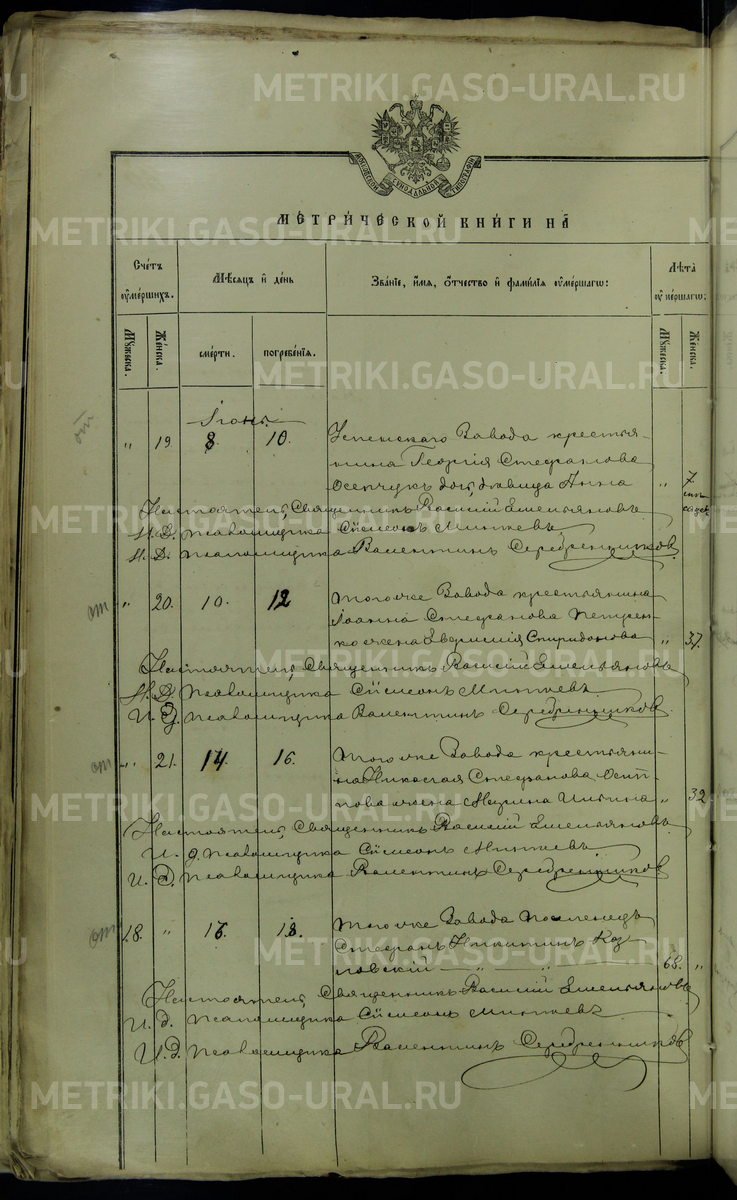 METRIKI.GASO-URAL.RU
МОСКОВСКОЙ СѴНОДАЛЬНОЙ ТИПОГРАФІИ
МЕТРИ́ЧЕСКОЙ КНИ́ГИ НА̀
Сче́тъ ᲂу҆ме́ршихъ.
Мѣ́сяцъ и҆ де́нь
Зва́ніе, и҆́мя, ѻ҆́тчество и҆ фами́лія ᲂу҆ме́ршагѡ:
Лѣ́та ᲂу҆ме́ршагѡ:
Му́жеска.
Же́нска.
сме́рти.
погребе́нія.
Му́жеска.
Же́нска.
Іюнь.
" 19. 8. 10. Успенскаго Завода крестья-
нина Георгія Стефанова
Осепчукъ дочь, дѣвица Анна " 7
Настоятель, Священникъ Василій Емельяновъ
И. д. псаломщика Сѵмеонъ Минѣевъ
И. д. псаломщика Валентинъ Серебренниковъ.
" 20. 10. 12 Того же Завода крестьянина
Іоанна Стефанова Петрен-
ко жена Спиридонова " 37.
Настоятель, Священникъ Василій Емельяновъ
И. д. псаломщика Сѵмеонъ Минѣевъ
И. д. псаломщика Валентинъ Серебренниковъ.
" 21. 14 16. Того же Завода крестьяни-
на Николая Стефанова Осип-
пова жена Марина Ильина " 32
Настоятель, Священникъ Василій Емельяновъ
И. д. псаломщика Сѵмеонъ Минѣевъ
И. д. псаломщика Валентинъ Серебренниковъ
18. " 16. 18. Того же Завода Поселенецъ
Стефанъ Никитинъ Коз-
ловскій — " — " — 68. "
Настоятель, Священникъ Василій Емельяновъ
И. д. псаломщика Сѵмеонъ Минѣевъ
И. д. псаломщика Валентинъ Серебренниковъ